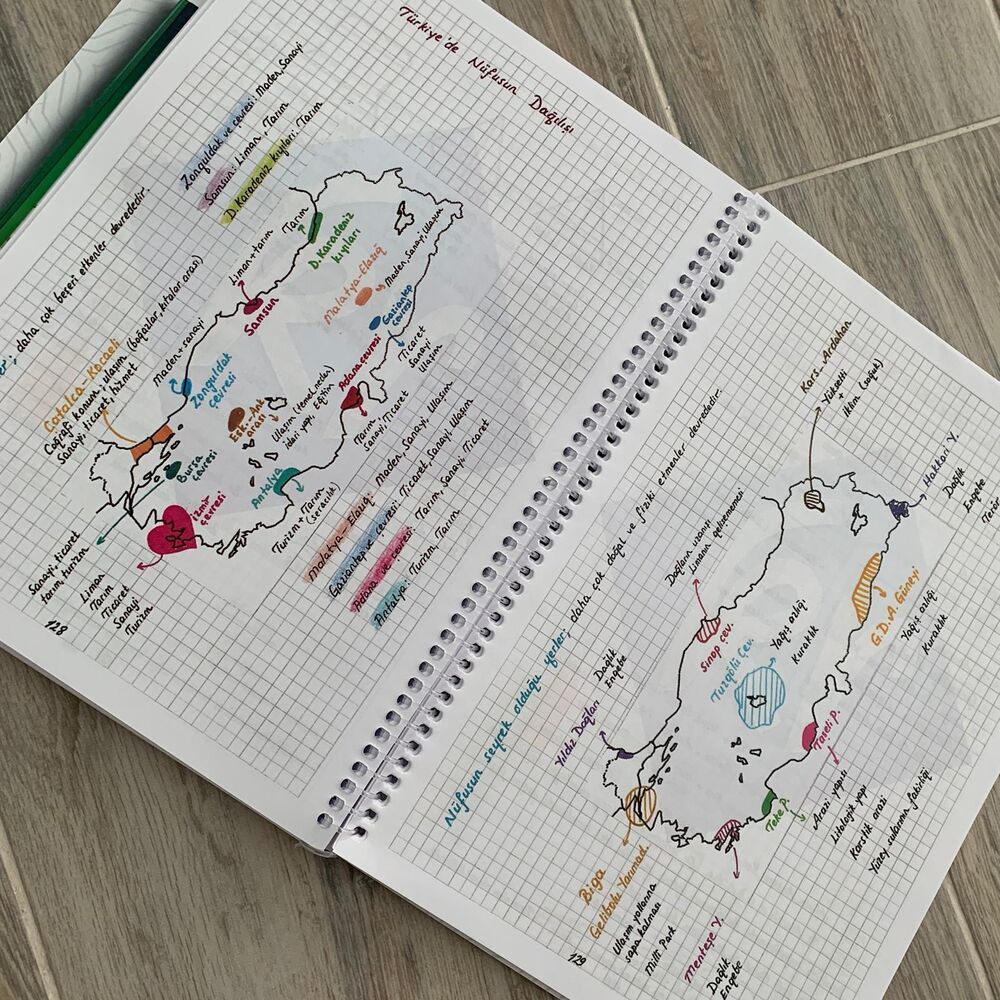 Türkiye'de Nüfusun Dağılışı
daha çok beşeri etkenler devrededir.
Zonguldak ve çevresi: Maden, Sanayi
Samsun: Liman, Tarım
D. Karadeniz kıyıları: Tarım
Çatalca-Kocaeli
Coğrafi konum, ulaşım (boğazlar, kıtalar arası)
Sanayi, ticaret, hizmet
Maden+sanayi
Zonguldak
çevresi
Liman+tarım
Samsun
Tarım
D. Karadeniz
kıyıları
Malatya-Elazığ
Maden, Sanayi, Ulaşım
Gaziantep
çevresi
Ticaret
Sanayi
Ulaşım
Adana çevresi
Tarım
Sanayi, Ticaret
Esk.-Ank.
arası
Ulaşım (temel neden)
idari yapı, Eğitim
Bursa
çevresi
Sanayi, ticaret
tarım, turizm
İzmir
çevresi
Liman
Tarım
Ticaret
Sanayi
Turizm
Antalya
Turizm+Tarım
(seracılık)
Malatya-Elazığ: Maden, Sanayi, Ulaşım
Gaziantep ve çevresi: Ticaret, Sanayi, Ulaşım
Adana ve çevresi: Tarım, Sanayi, Ticaret
Antalya: Turizm, Tarım
128
Nüfusun seyrek olduğu yerler; daha çok doğal ve fiziki etmenler devrededir.
Yıldız Dağları
Dağlık
Engebe
Dağların uzanışı
Limanın gelişememesi
Sinop çev.
Kars-Ardahan
Yükselti
+
iklim (soğuk)
Hakkari Y.
Dağlık
Engebe
G.D.A. Güneyi
Yağış azlığı
Kuraklık
Tuzgölü Çev.
Yağış azlığı
Kuraklık
Taşeli P.
Arazi yapısı
Litolojik yapı
Karstik arazi
Yüzey sularının fakirliği
Teke P.
Biga
Gelibolu Yarımad.
Ulaşım yollarına
sapa kalması
Milli Park
Menteşe Y.
Dağlık
Engebe
129